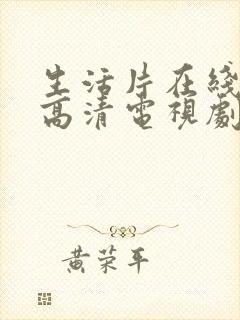 生活片在綫
高清電視劇
黄荣平